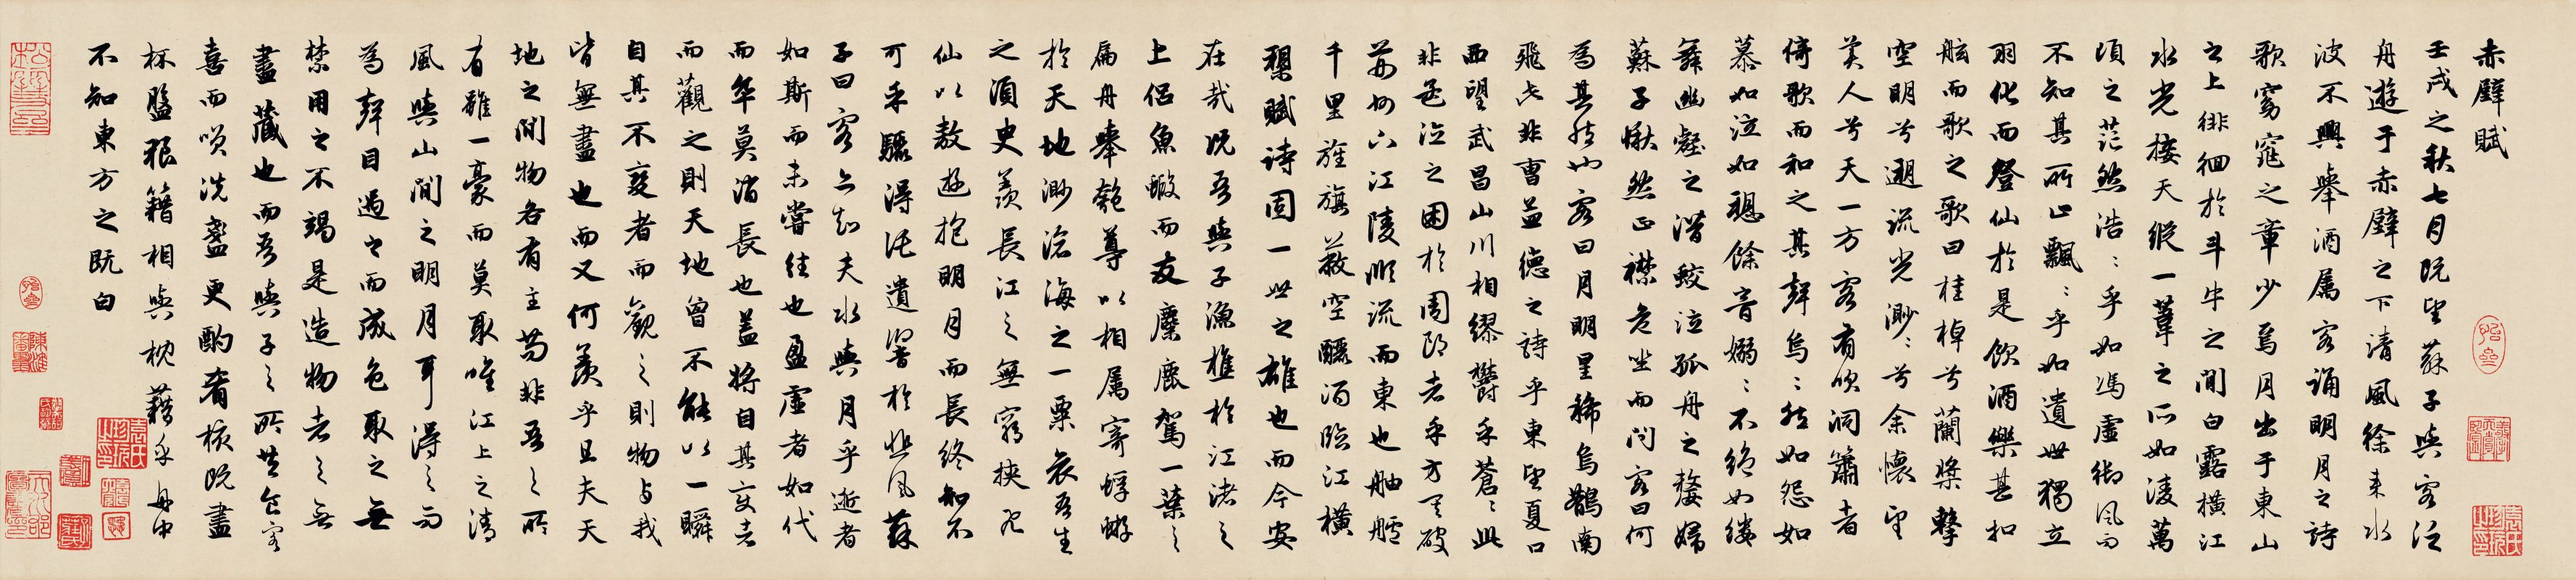 赤壁賦
壬戌之秋七月既望蘇子與客泛
舟遊于赤壁之下清風徐來水
波不興舉酒属客誦明月之詩
歌窈窕之章少焉月出于東山
之上徘徊於斗牛之間白露橫江
水光接天縱一葦之所如淩萬
頃之茫然浩〻乎如馮虛御風而
不知其所止飄〻乎如遺世獨立
羽化而登仙於是飲酒樂甚扣
舷而歌之歌曰桂棹兮蘭槳擊
空明兮遡流光渺〻兮余懷望
美人兮天一方客有吹洞簫者
倚歌而和之其聲嗚〻然如怨如
慕如泣如愬餘音嫋〻不絕如縷
舞幽壑之潛蛟泣孤舟之嫠婦
蘇子愀然正襟危坐而問客曰何
為其然也客曰月明星稀烏鵲南
飛此非曹孟德之詩乎東望夏口
西望武昌山川相繆鬱乎蒼〻此
非孟德之困於周郎者乎方其破
荊州下江陵順流而東也舳艫
千里旌旗蔽空釃酒臨江橫
槊賦詩固一世之雄也而今安
在哉況吾與子漁樵於江渚之
上侶魚蝦而友麋鹿駕一葉之
扁舟舉匏尊以相属寄蜉蝣
於天地渺滄海之一粟哀吾生
之須臾羨長江之無窮挾飛
仙以敖遊抱明月而長終知不
可乎驟得託遺響於悲風蘇
子曰客亦知夫水與月乎逝者
如斯而未嘗往也盈虛者如代
而卒莫消長也蓋將自其變者
而觀之則天地曾不能以一瞬
自其不變者而觀之則物與我
皆無盡也而又何羨乎且夫天
地之間物各有主苟非吾之所
有雖一豪而莫取唯江上之清
風與山間之明月耳得之而
為聲目遇之而成色取之無
禁用之不竭是造物者之無
盡藏也而吾與子之所共食客
喜而笑洗盞更酌肴核既盡
杯盤狼籍相與枕藉乎舟中
不知東方之既白